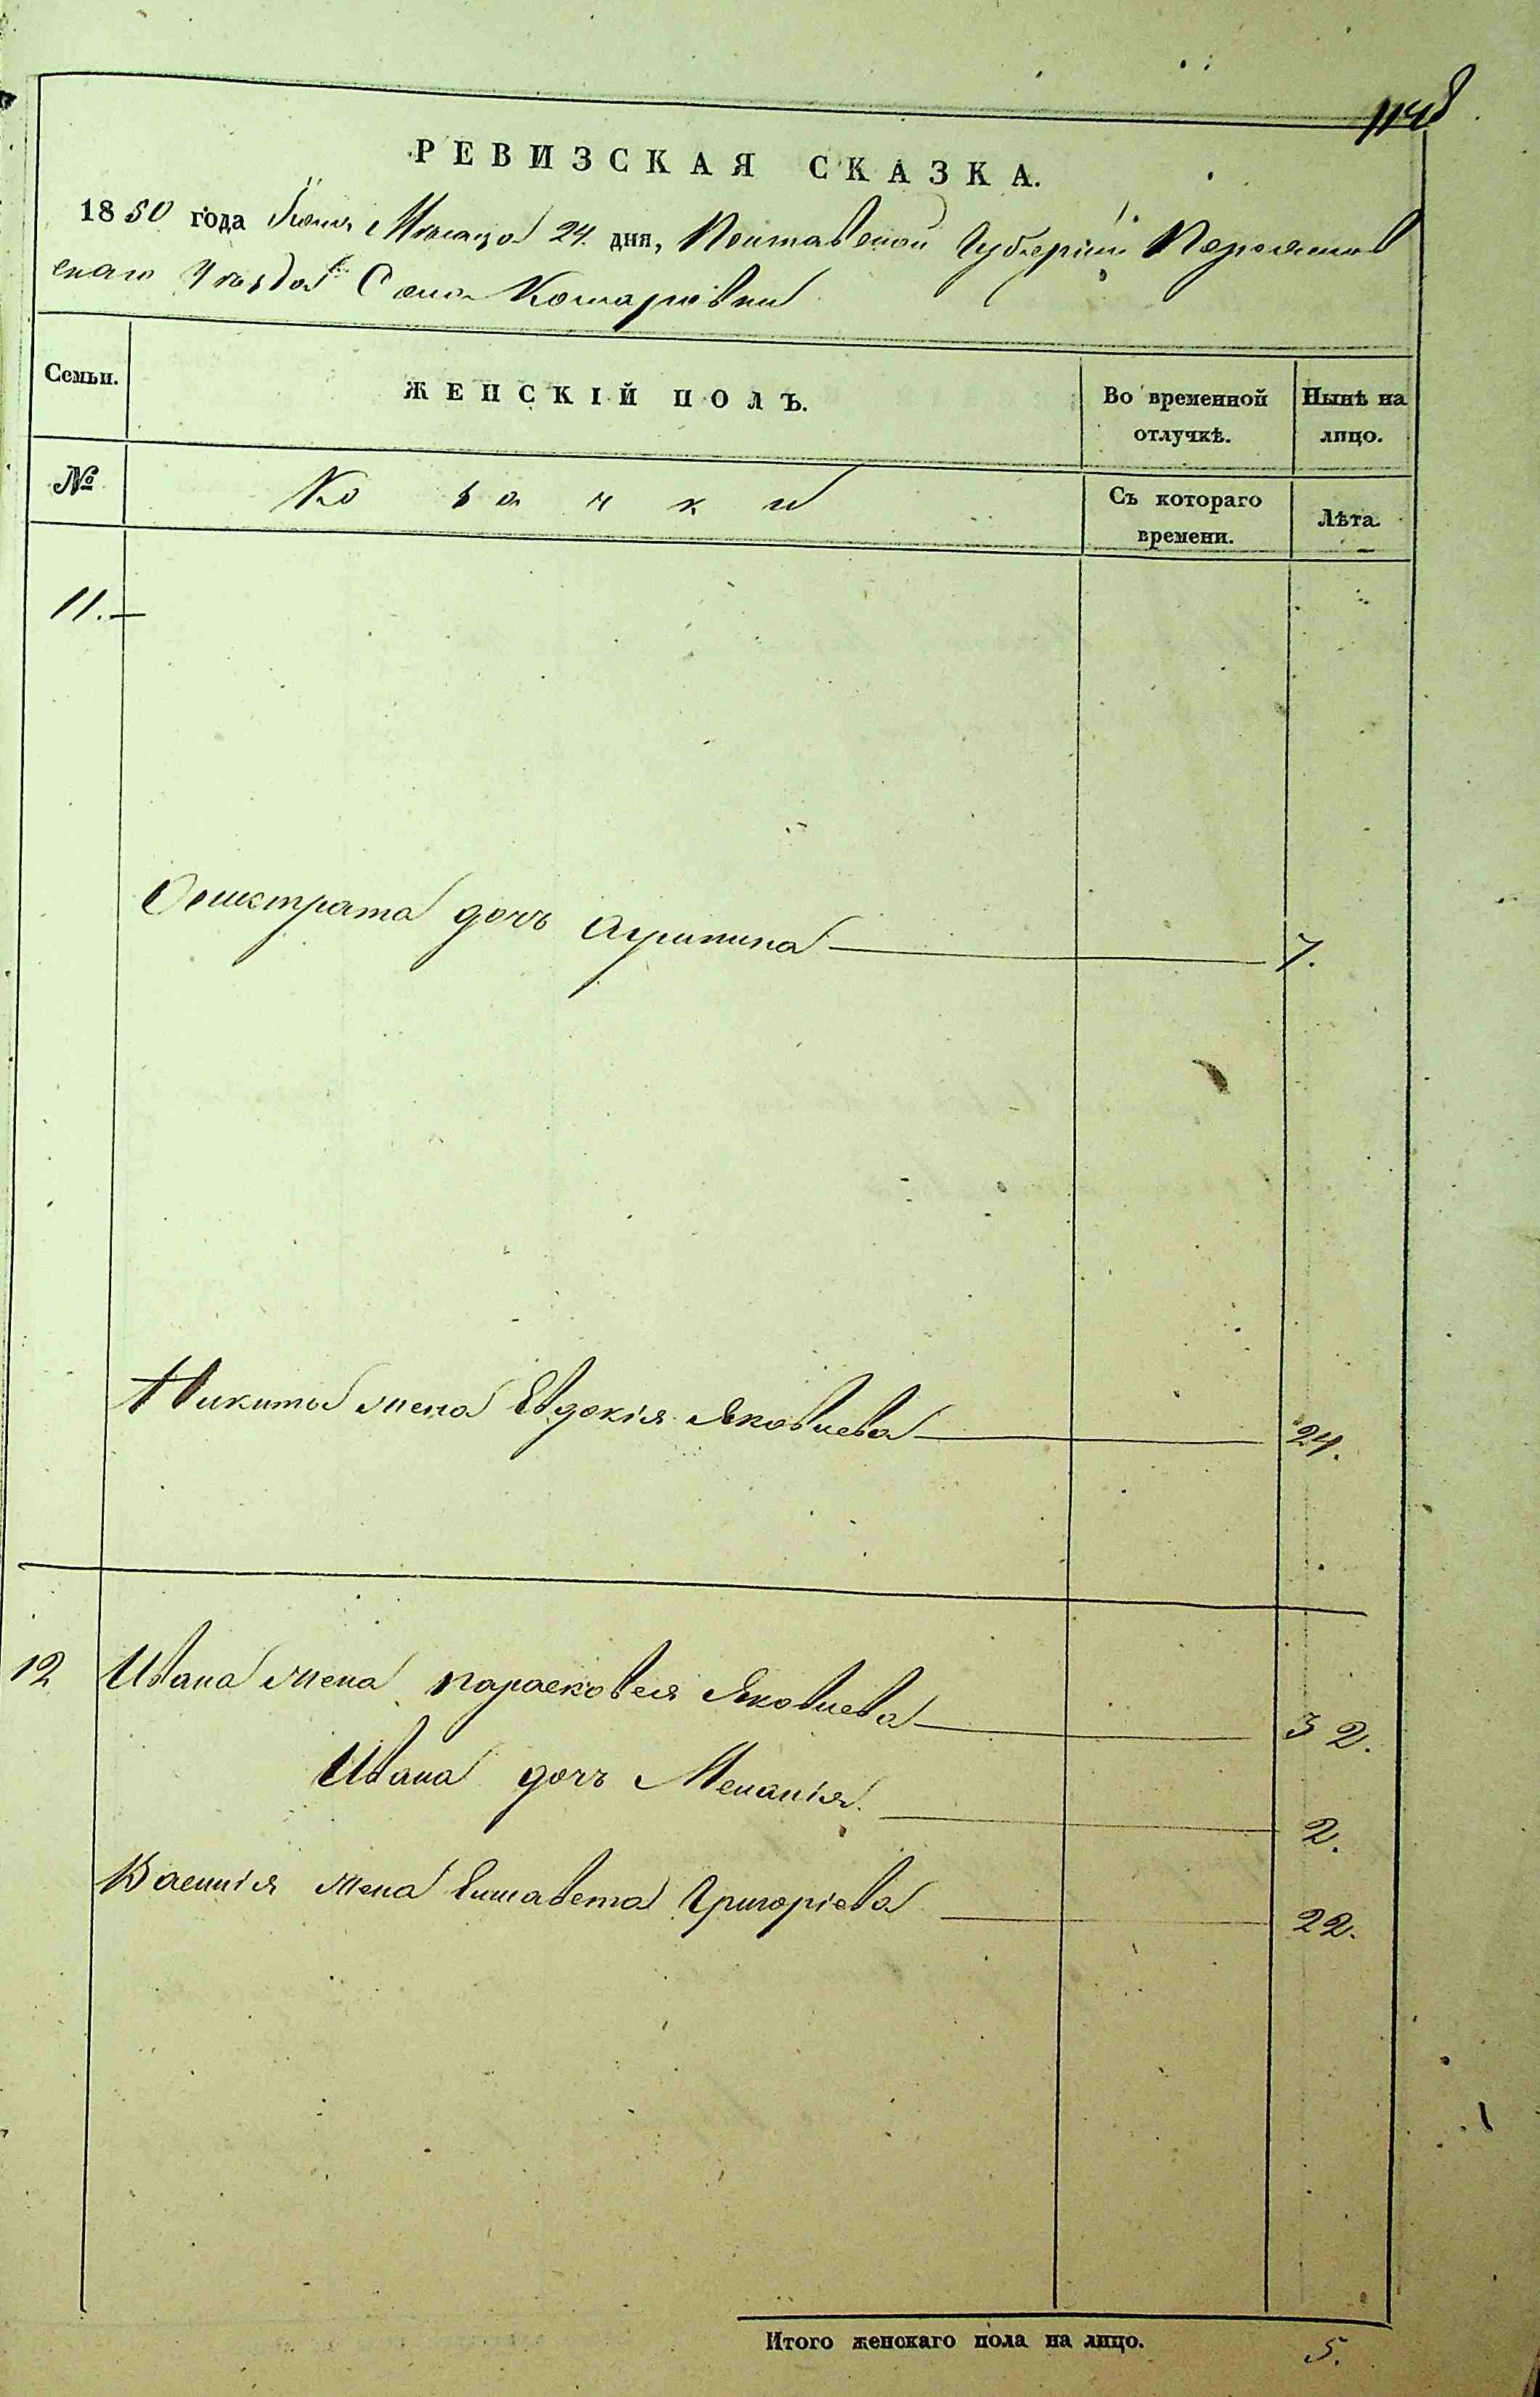 1148
РЕВИЗСКАЯ СКАЗКА.
1850 года Іюня Месяца 24. дня, Полтавской Губерніи Переяслов
скаго Уезда Села Комаровки
Семьи.
ЖЕНСКІЙ ПОЛЪ.
Во временной отлучкѣ.
Нынѣ на лицо.
№
Козачки
Съ котораго времени.
Лѣта.
11.
дочь Агрипина 7.
Никиты жена Евдокія Яковлева 24.
12 Ивана жена Парасковея Яковлева 32.
Ивана дочь Меланія. 2.
Василія жена Елисавета Григоріева 22.
Итого женскаго пола на лицо. 5.